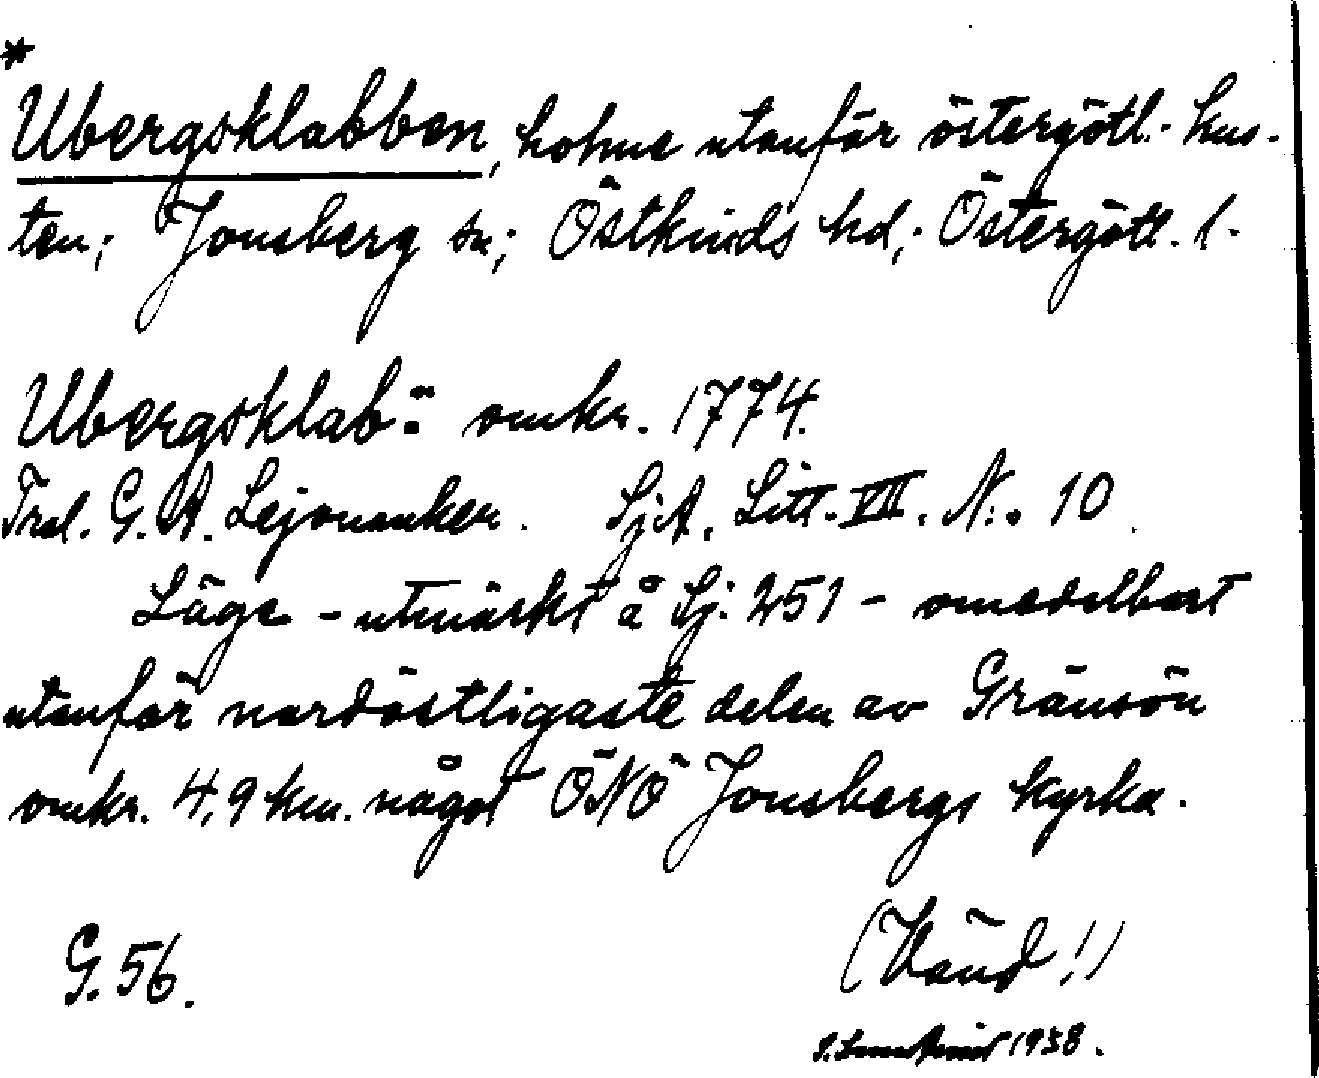 *
Ubergsklabben, holme utanför östergötl. kus-
ten; Jonsberg sn; Östkinds hd; Östergötl. l.
Ubergsklab: omkr. 1774.
Trol. G. A. Lejonanker. SjA. Litt. VII. N:o 10.
Läge - utmärkt å Sj. 251 - omedelbart
utanför nordöstligaste delen av Gränsön
omkr. 4,9 km. något ÖNÖ Jonsbergs kyrka.
G. 56. (Vänd!)
1938.